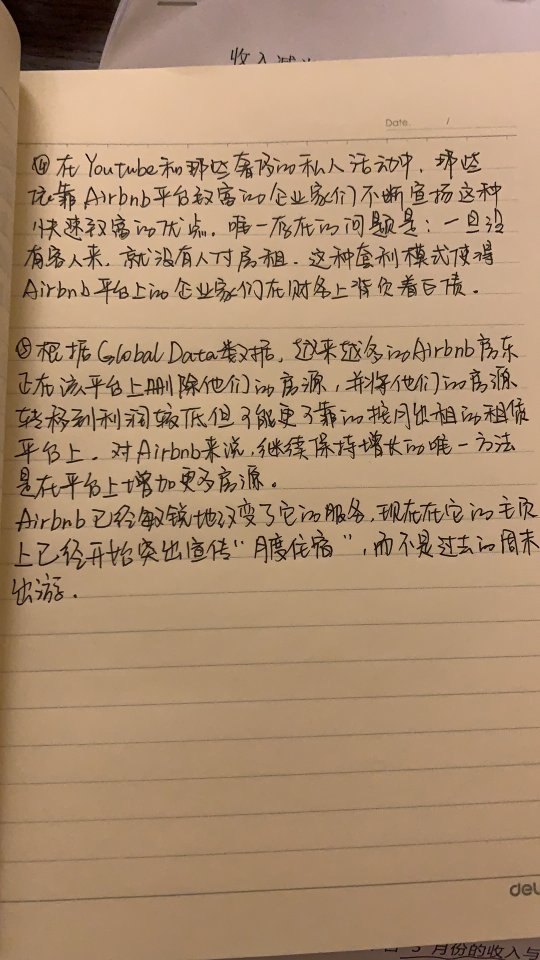 收入减
Date. /
④ 在Youtube和那些奢侈的私人活动中，那些
依靠Airbnb平台致富的企业家们不断宣扬这种
快速致富的优点。唯一存在的问题是：一旦没
有客人来，就没有人付房租。这种套利模式使得
Airbnb平台上的企业家们在财务上背负着巨债。
⑤ 根据Global Data数据，越来越多的Airbnb房东
正在该平台上删除他们的房源，并将他们的房源
转移到利润较低但可能更可靠的按月出租的租赁
平台上。对Airbnb来说，继续保持增长的唯一方法
是在平台上增加更多房源。
Airbnb已经敏锐地改变了它的服务，现在在它的主页
上已经开始突出宣传“月度住宿”，而不是过去的周末
出游。
del
月份的收入与